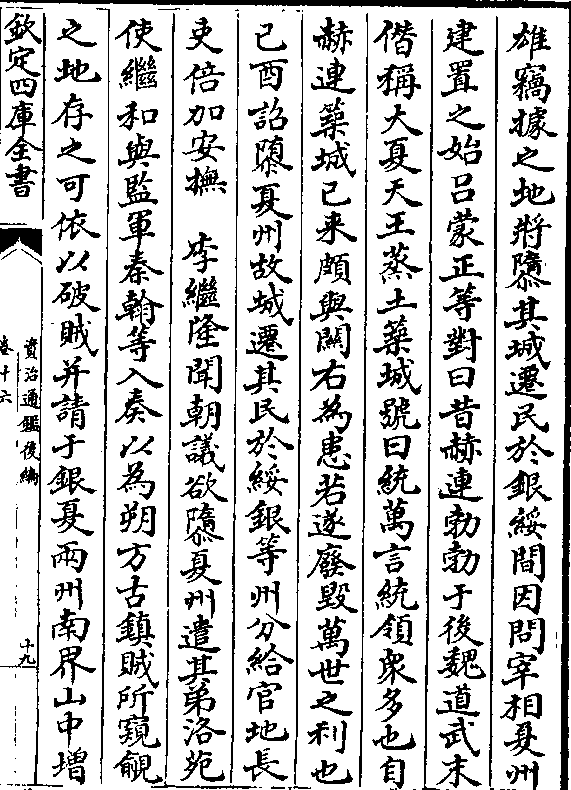 雄竊據之地將隳其城遷民於銀綏間因問宰相夏州
建置之始吕蒙正等對曰昔赫連勃勃于後魏道武末
僭稱大夏天王蒸土築城號曰統萬言統領衆多也自
赫連築城已来頗與關右為患若遂廢毀萬世之利也
己酉詔隳夏州故城遷其民於綏銀等州分給官地長
吏倍加安撫　李繼隆聞朝議欲隳夏州遣其弟洛苑
使繼和與監軍秦翰等入奏以為朔方古鎮賊所窺覦
之地存之可依以破賊并請于銀夏兩州南界山中增
欽定四庫全書
資治通鑑後編
卷十六
十九